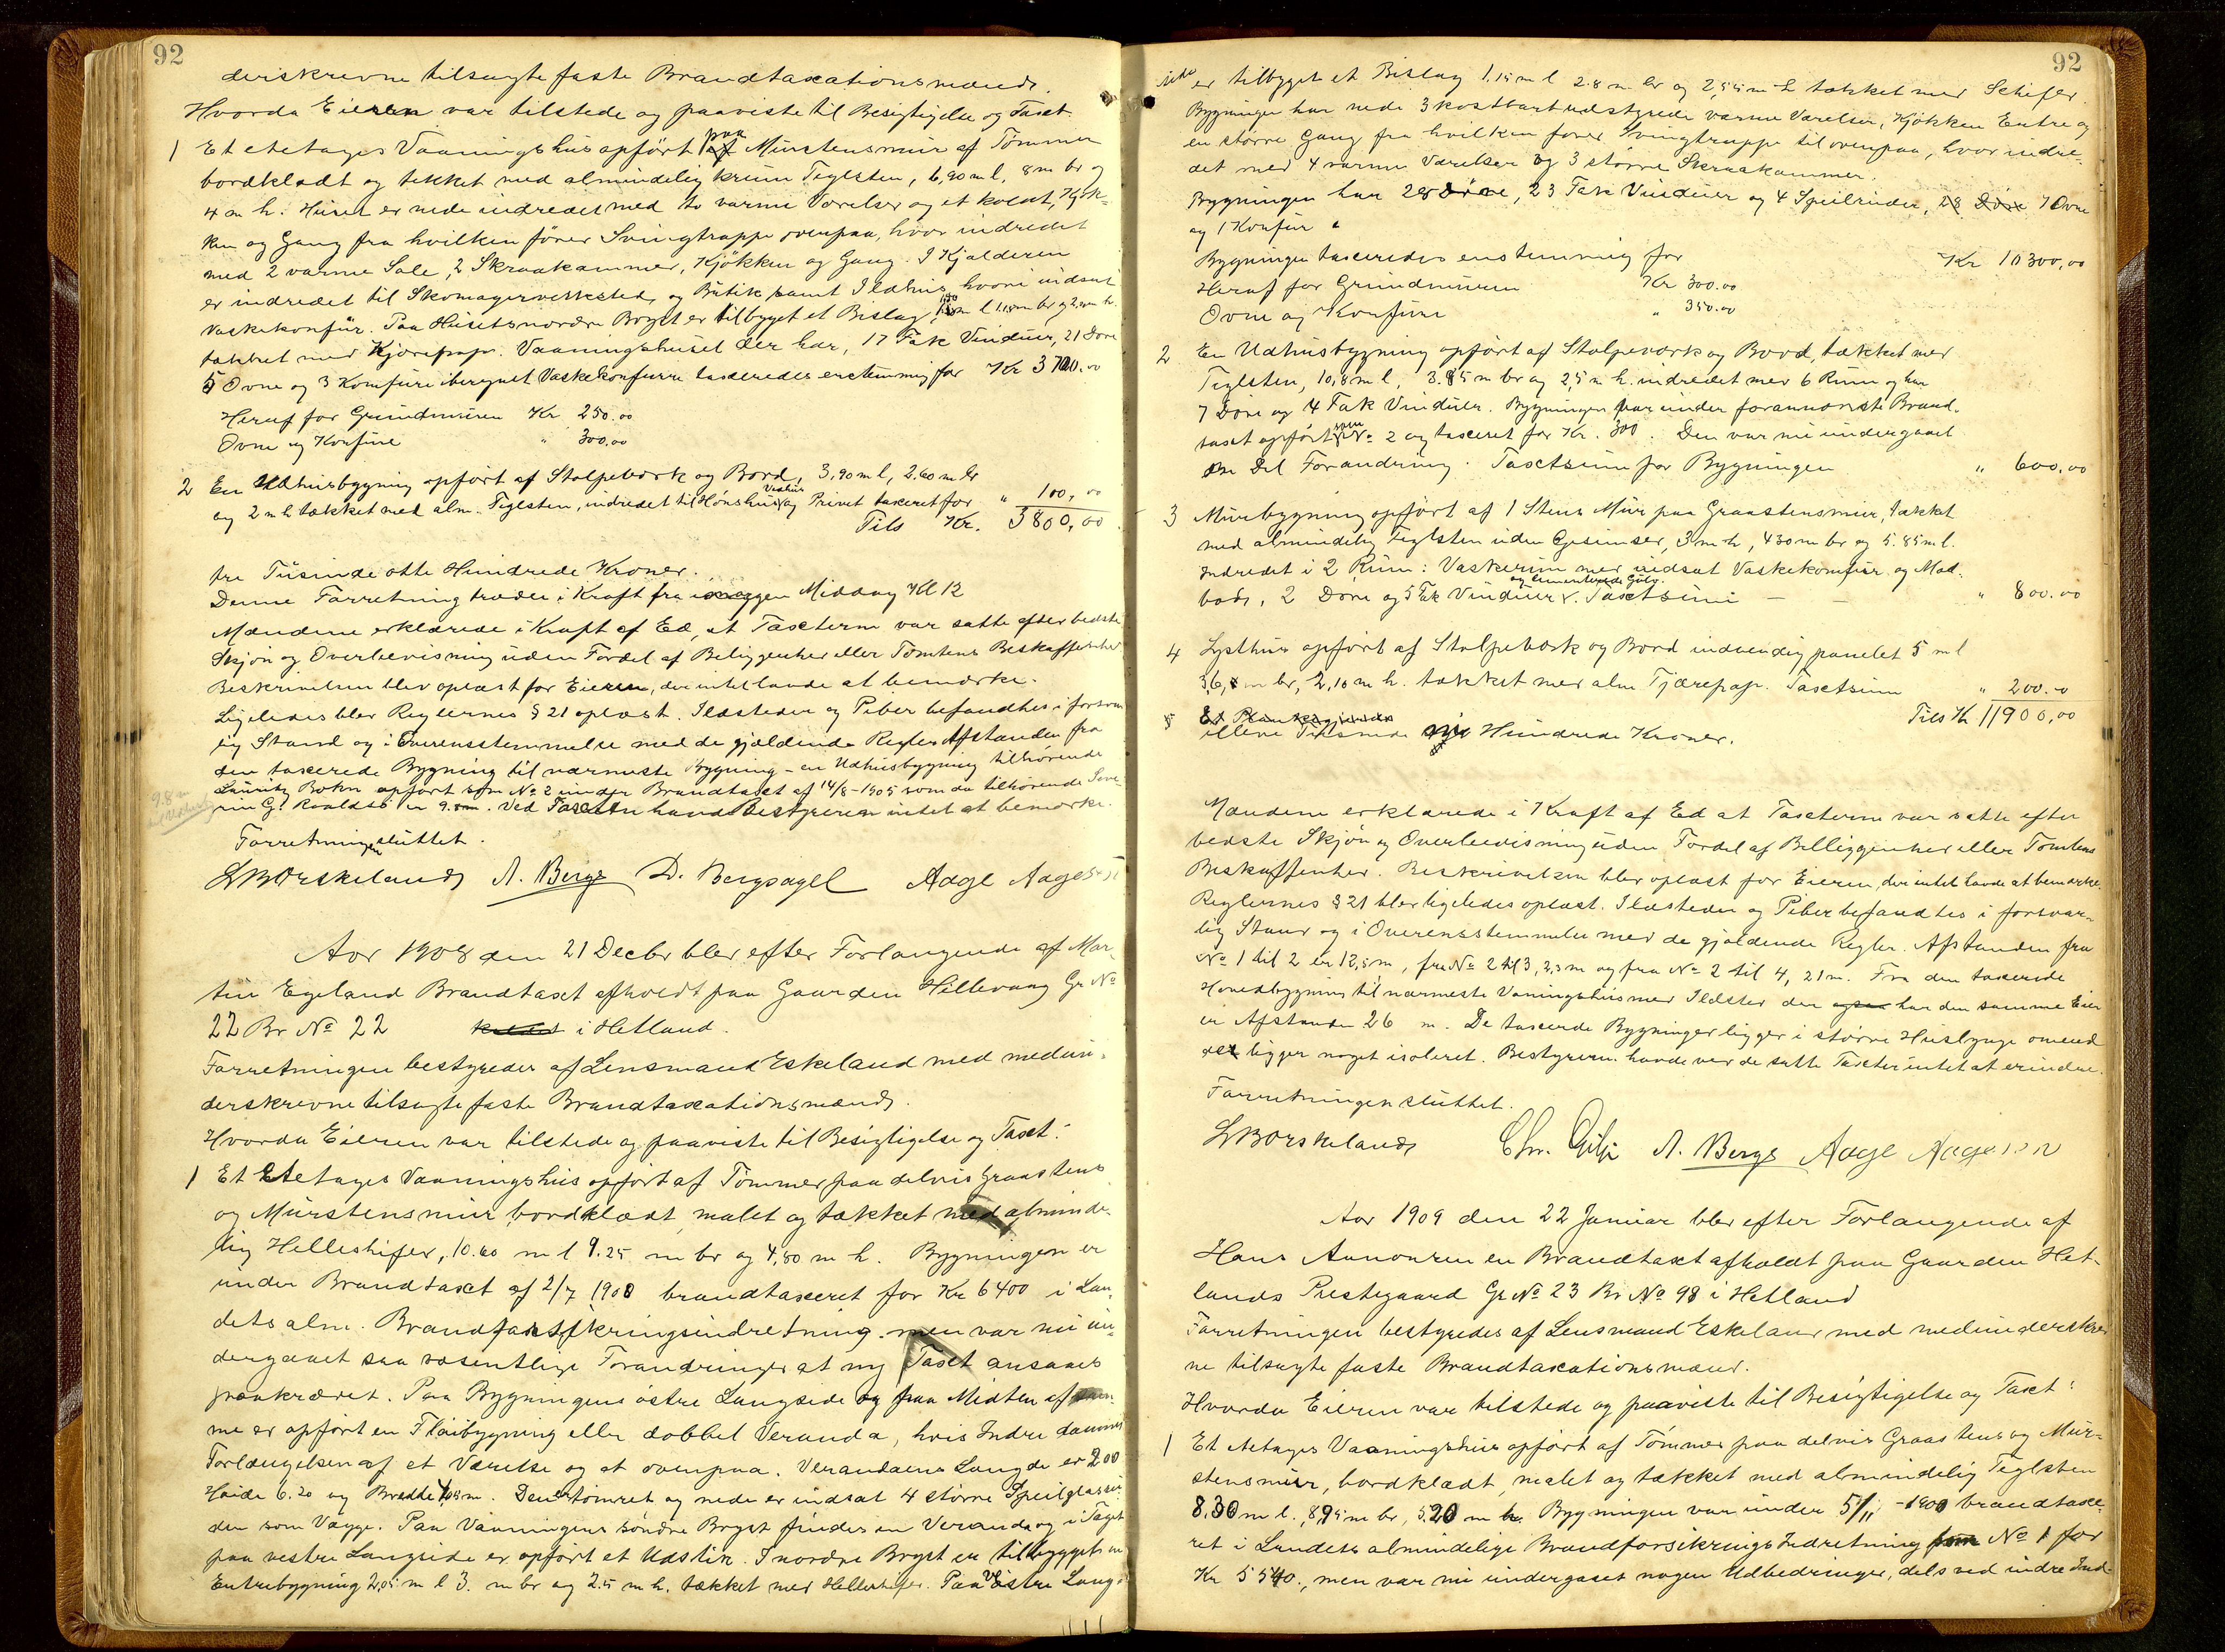 92
derskrevne tilsagte faste Brandtaxationsmænd.
Hvorda Eieren var tilstede og paaviste til Besigtigelse og Taxt
1 Et etetages Vaaningshus opført paa Murstensmur af Tømmer
bordklædt og tekket med almindelig krum Teglsten, 6,90 m l, 8 m br og
4 m h. Huset er nede indredet med to varme Værelser og et koldt, Kjøk-
ken og Gang fra hvilken fører Svingtrappe ovenpaa, hvor indredet
med 2 varme Sale, 2 Skraakammer, Kjøkken og Gang. I Kjælderen
er indredet til Skomagerverksted, og Butik samt Ildhus, hvori indsat
Vaskekomfur. Paa Husets nordre Bryst er tilbygget et Bislag, l 1.15 m br og h.
tækket med Kjærepap. Vaaningshuset der har, 17 Fak Vinduer, 21 Døre
5 Ovne og 3 Komfure iberegnet Vaskekomfure taxeredes enstemmig for Kr 3700.00
Heraf for Grundmuren Kr 250.00
Ovne og Konfure " 300.00
2 En Udhusbygning opført af Stolpeværk og Bord, 3,90 m l, 2.60 m br
og 2 m h tækket med alm. Teglsten, indredet til Hønshus Vedhus og Privet taxeret for " 100,00
Tils Kr. 3800,00
tre Tusinde otte Hundrede Kroner.
Denne Forretning træder i Kraft fra Middag Kl 12
Mændene erklærede i Kraft af Ed, at Taxterne var satte efter bedste
Skjøn og Overbevisning uden Fordel af Beliggenhed eller Tomtens Beskaffenhed.
Beskrivelsen blev oplæst for Eieren, der intet havde at bemærke.
Ligeledes blev Reglernes § 21 oplæst. Ildsteder og Piber befandtes i forsvar
lig Stand og i Overensstemmelse med de gjældende Regler. Afstanden fra
den taxerede Bygning til nærmeste Bygning - en Udhusbygning tilhørende
Lauritz Bokn opført som No 2 under Brandtaxt af 14/8-1905 som da tilhørende Seve-
rin G. er 9.8 m. Ved Taxten havde Bestyreren intet at bemærke.
9.8 m
Forretningen sluttet.
LBørskeland A. Berge D. Bergsagel Aage Aagesen
Aar 1908 den 21 Decbr blev efter Forlangende af Mar-
tin Egeland Brandtaxt afholdt paa Gaarden Hillevaag Gr No
22 Br No 22 i Hetland.
Forretningen bestyredes af Lensmand Eskeland med medun-
derskrevne tilsagte faste Brandtaxationsmænd.
Hvorda Eieren var tilstede og paaviste til Besigtigelse og Taxt:
1 Et etetages Vaaningshus opført af Tømmer paa delvis Graastens
og Murstensmur bordklædt, malet og tækket med alminde-
lig Helleskifer, 10.60 m l 9.25 m br og 4,50 m h. Bygningen er
under Brandtaxt af 2/7 1908 brandtaxeret for Kr 6400 i Lan-
dets alm. Brandforsikringsindretning. men var nu un-
dergaaet saa væsentlige Forandringer at ny Taxt ansaaes
paakrævet. Paa Bygningens østre Langside og paa Midten af sam-
me er opført en Fløibygning eller dobbel Veranda, hvis Indre danner
Forlængelsen af et Værelse og et ovenpaa. Verandaens Længde er 2.00
Høide 6.20 og Bredde m. Den er tømret og nede er indsat 4 større Speilglasru-
der som Vægge. Paa Vaaningens søndre Bryst findes en Veranda og i Taget
paa vestre Langside er opført et Udstik. I nordre Bryst er tilbygget en
Entrebygning 2,05 m l 3. m br og 2.5 m h. tækket med Helleskifer. Paa Vestre Lang-
92
side er tilbygget et Bislag 1.15 m l 2.8 m br og 2,55 m h tækket med Schifer.
Bygningen har nede 3 kostbart udstyrede varme Værelser, Kjøkken Entre og
en større Gang fra hvilken fører Svingtrappe til ovenpaa, hvor indre-
det med 4 varme Værelser og 3 større Skraakammer.
Bygningen har 28 Døre, 23 Fak Vinduer og 4 Speilruder, 28 Døre 7 Ovne
og 1 Konfur
Bygningen taxeredes enstemmig for Kr 10300,00
Heraf for Grundmuren Kr 300.00
Ovne og Konfure " 350.00
2 En Udhusbygning opført af Stolpeværk og Bord, tækket med
Teglsten, 10,8 m l, 3.85 m br og 2,5 m h. indredet med 6 Rum og har
7 Døre og 4 Fak Vinduer. Bygningen var under forannævnte Brand-
taxt opført som No 2 og taxeret for Kr. 300. Den var nu undergaaet
en Del Forandring. Taxtsum for Bygningen " 600,00
3 Murbygning opført af 1 Stens Mur paa Graastensmur, tækket
med almindelig Teglsten uden Gesimser, 3 m h, 4.30 m br og 5.85 m l.
Indredet i 2 Rum: Vaskerum med indsat Vaskekomfur og Mad-
bod, 2 Døre og 5 Fak Vinduer og cementerede Gulv. Taxtsum — — " 800.00
4 Lysthus opført af Stolpeværk og Bord indvendig panelet 5 m l
br, 2,10 m h. tækket med alm Tjærepap. Taxtsum " 200.00
5 Et Tils Kr 11900,00
elleve Tusinde ni Hundrede Kroner.
Mændene erklærede i Kraft af Ed at Taxterne var satte efter
bedste Skjøn og Overbevisning uden Fordel af Beliggenhed eller Tomtens
Beskaffenhed. Beskrivelsen blev oplæst for Eieren, der intet havde at bemærke.
Reglernes § 21 blev ligeledes oplæst. Ildsteder og Piber befandtes i forsvar-
lig Stand og i Overensstemmelse med de gjældende Regler. Afstanden fra
No 1 til 2 er 12,5 m, fra No 2 til 3, 2,3 m og fra No 2 til 4, 21 m. Fra den taxerede
Hovedbygning til nærmeste Vaningshus med Ildsted der har den samme Eier
er Afstanden 26 m. De taxerede Bygninger ligger i større Husklynge omend
det ligger noget isoleret. Bestyreren havde ved de satte Taxter intet at erindre.
Forretningen sluttet.
LBørskeland Chr. Gilje A. Berge Aage Aagesen
Aar 1909 den 22 Januar blev efter Forlangende af
Hans Aanonsen en Brandtaxt afholdt paa Gaarden Het-
lands Prestegaard Gr No 23 Br No 98 i Hetland
Forretningen bestyredes af Lensmand Eskeland med medunderskrev
ne tilsagte faste Brandtaxationsmænd.
Hvorda Eieren var tilstede og paaviste til Besigtigelse og Taxt:
1 Et etetages Vaaningshus opført af Tømmer paa delvis Graastens og Mur-
stensmur, bordklædt, malet og tækket med almindelig Teglsten
8.30 m l., 8,95 m br, 5.20 m h. Bygningen var under 5/11-1900 brandtaxe-
ret i Landets almindelige Brandforsikrings Indretning som No 1 for
Kr 5540., men var nu undergaaet nogen Udbedringer, dels ved indre Ind-